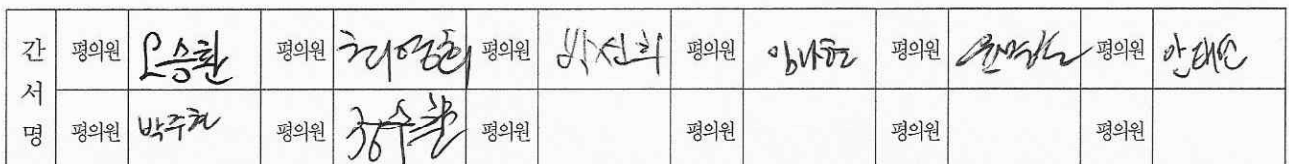 간서명 평의원 오승환 평의원 최영희 평의원 박신희 평의원 임나현 평의원 평의원 안태선
평의원 박주현 평의원 평의원 평의원 평의원 평의원